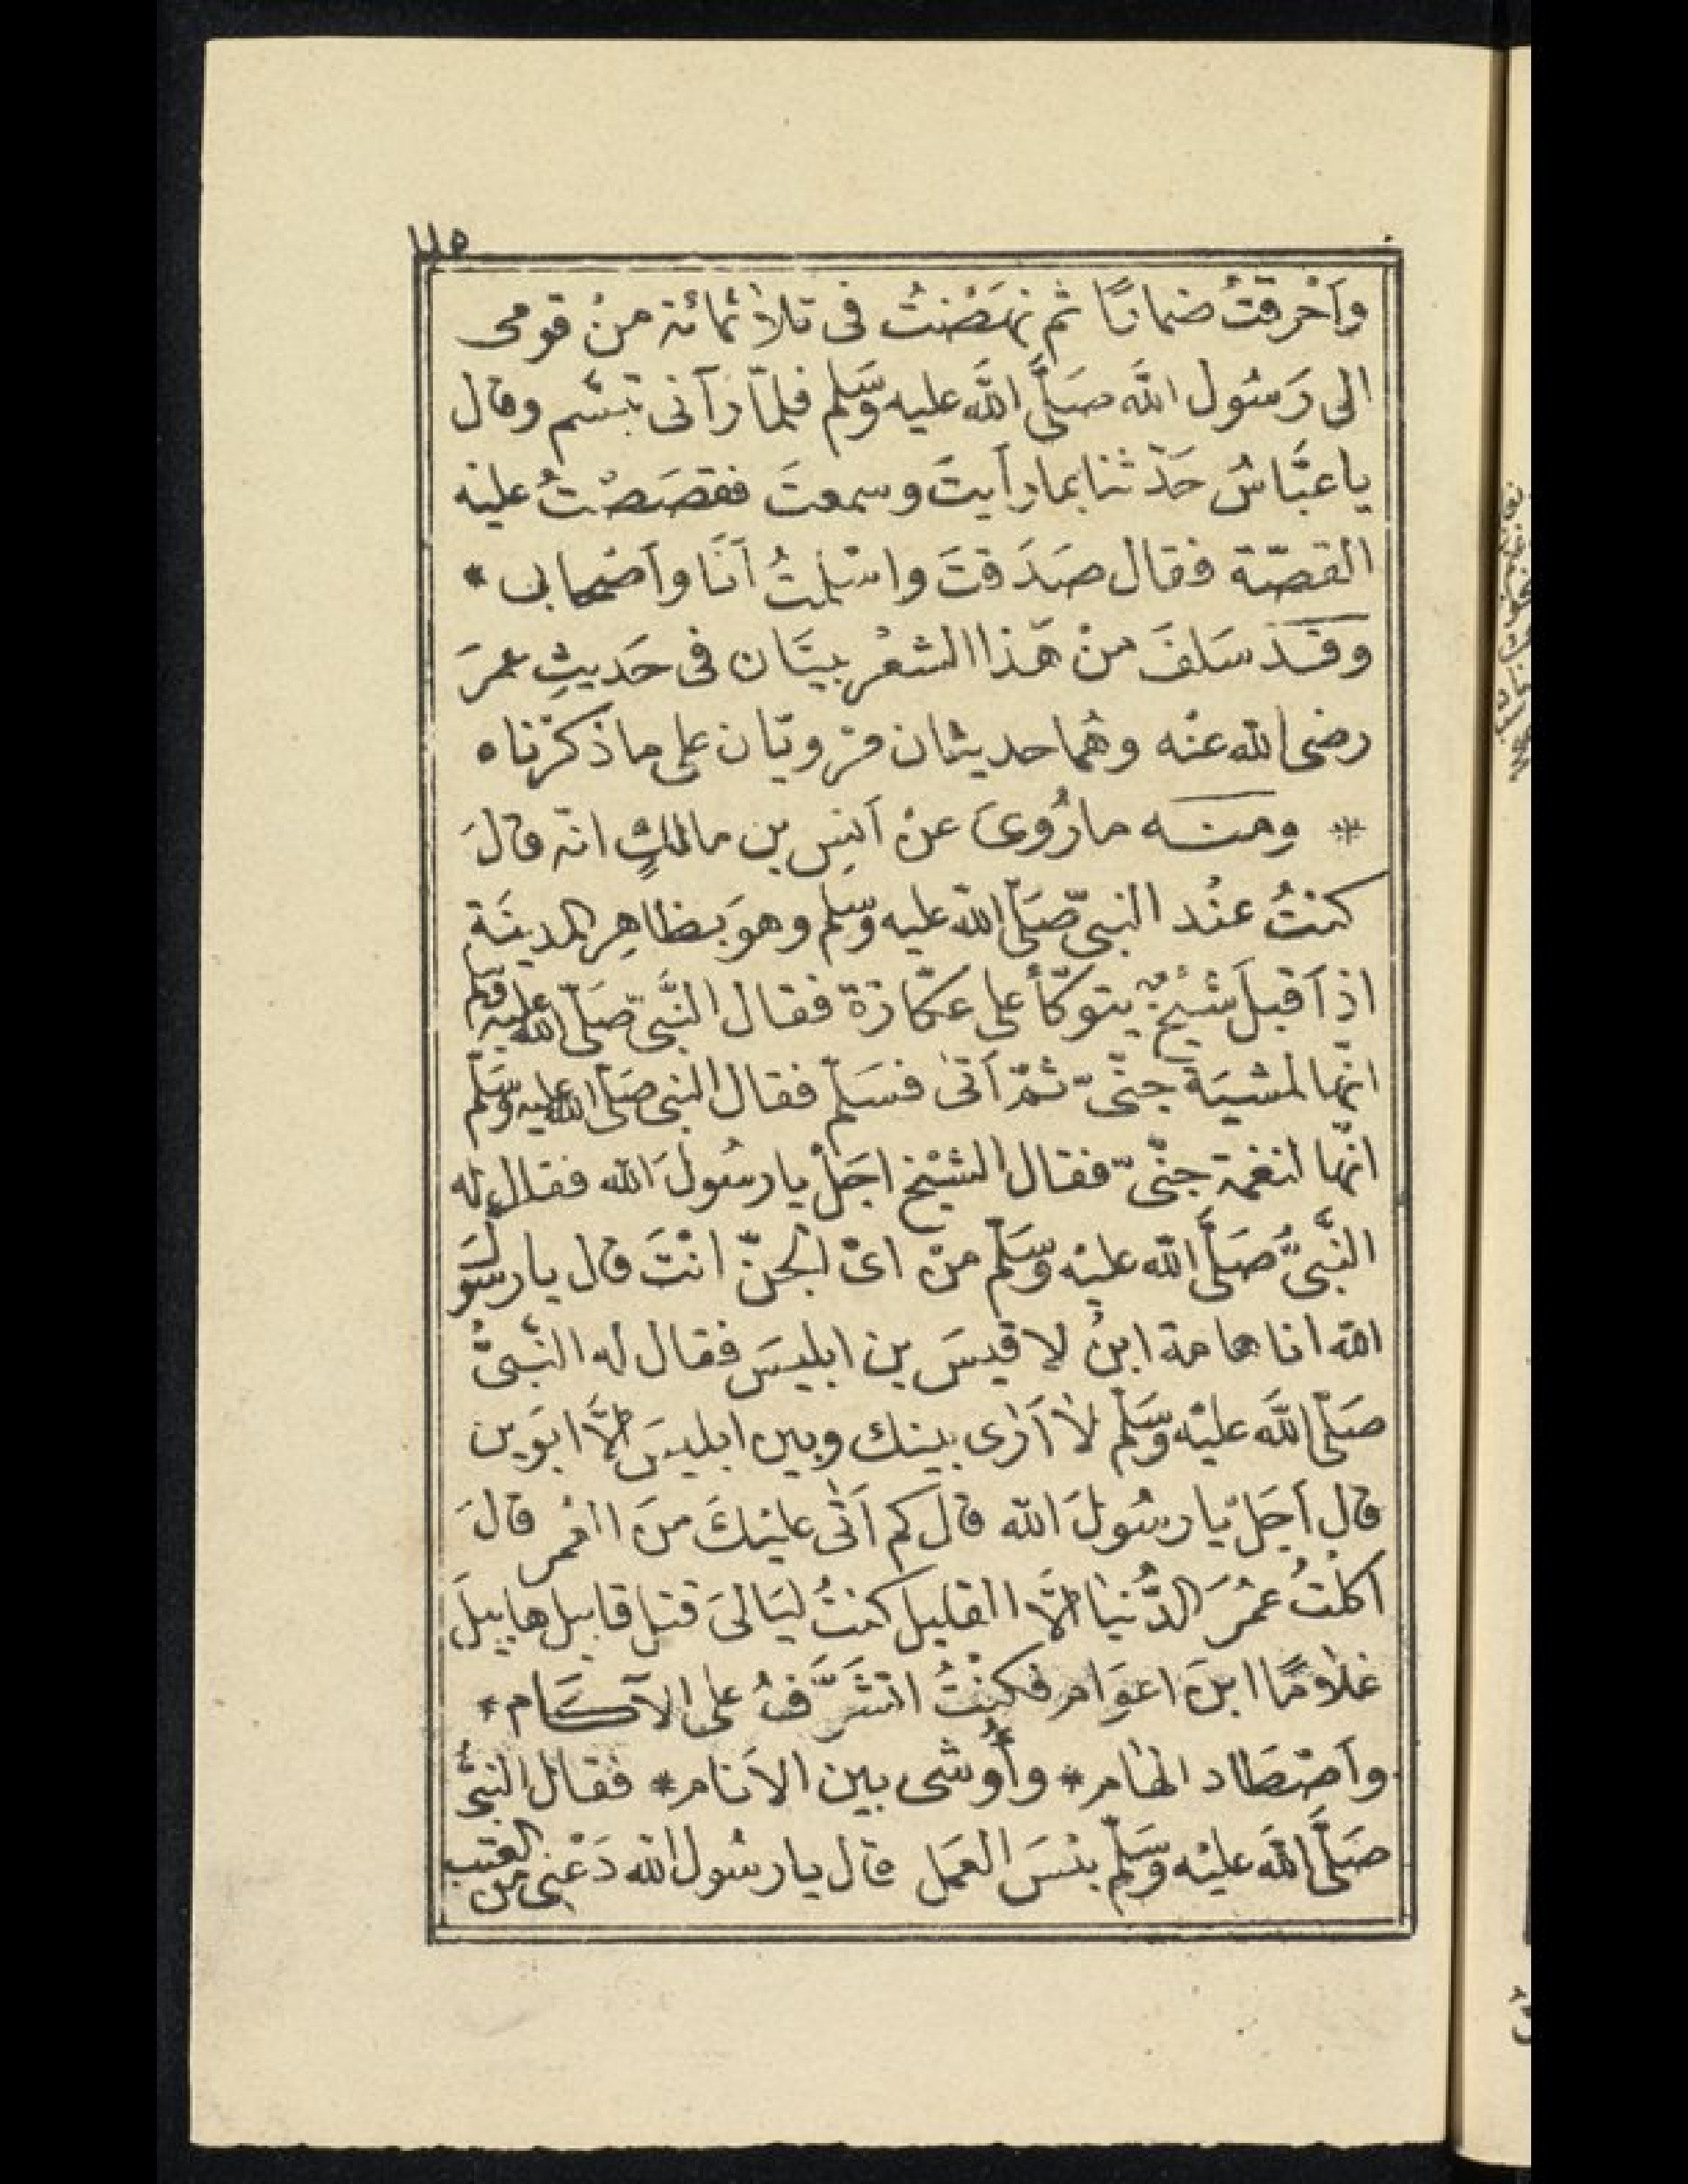 ١١٥
وَاَحْرقتُ ضمارًا ثم نهَضْتُ فى ثلاثمائة منْ قومى
الى رَسُول اللَّه صَلَّى اللَّه عليه وَسَّلم فلمّا رآنى تبسّم وقال
يا عبَّاسُ حَدّثنا بما رأيتَ وسمعتَ فقصَصْتُ عليْه
القصّة فقال صَدَقتَ واسْلمتُ اَنَا وَاَصْحابى *
وقد سَلفَ منْ هَذا الشعْر بيتَان فى حَديثِ عمرَ
رضى الله عنْه وهُما حديثان مرْويّان على ما ذكرْناه
* ومنه ما رُوىَ عنْ اَنِس بن مالكٍ انّه قالَ
كنتُ عنْد النبىّ صَلّى اللّه عليه وسّلم وهوَ بظاهِر المدينَة
اذ اَقبلَ شيْخٌ يتوكّأ على عكّازة فقال النَّبىّ صَلّى اللّه عليه وسلم
انّها لمشيَة جنّىّ ثمّ اَتى فسَلّم فقال النبى صَلّى الله عليه وسَلّم
انّها لنغمة جنّىّ فقال الشيْخ اجَلْ يا رسُولَ الله فقال له
النَّبىُّ صَلَّى اللّه عليْه وَسّلم منْ اىّ الجنّ انْتَ قال يا رسُولَ
اللّه انا هامة ابنُ لاقيسَ بن ابليسَ فقال له النّبىُّ
صَلّى اللَّه عليْه وَسّلم لاْ اَرَى بينك وبين ابليسَ الاَّ ابَوين
قال اَجَلْ يا رسُولَ اللّه قال كم اَتى عليْكَ منَ العُمر قالَ
اكلْتُ عُمُرَ الدُّنيا الاَّ القليل كنتُ ليَالىَ قتل قابيل هابيلَ
غلامًا ابنَ اعوَام فكنْتُ اتشَرَّفُ على الآكَام *
وَاَصْطاد الهَام * وأُوشى بين الاَنام * فقال النبىُّ
صَلَّى اللَّه عليْه وَسّلم بئسَ العمَل قال يا رسُول اللّه دَعْنى من العتب